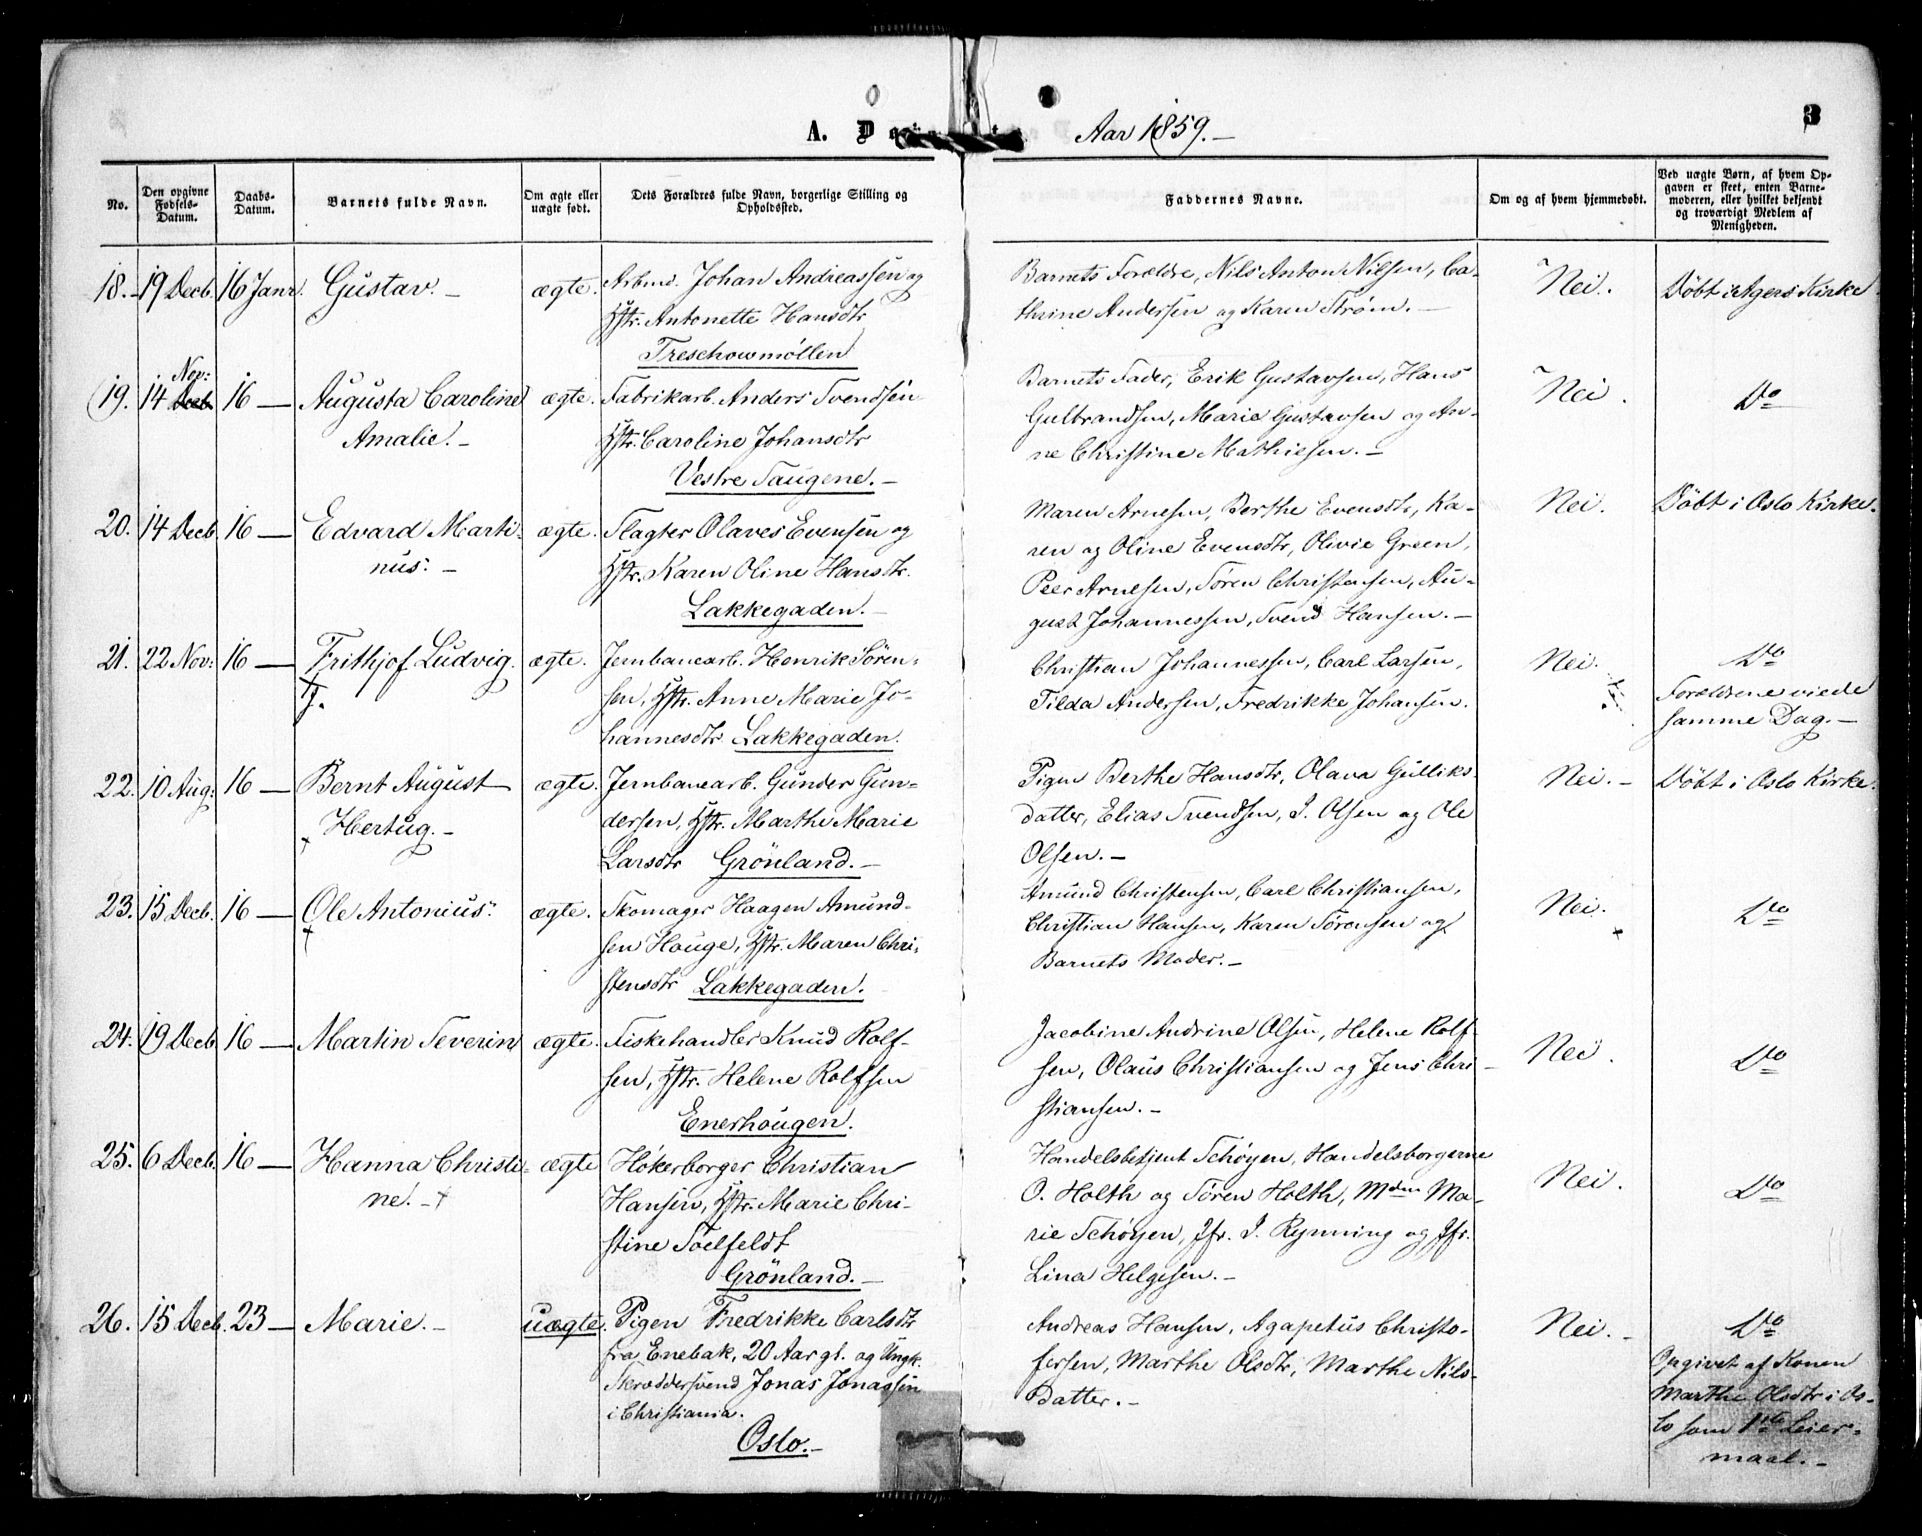 A. D
Aar 1859.—
3
No.
Den opgivne Fødsels-Datum.
Daabs-Datum.
Barnets fulde Navn.
Om ægte eller uægte født.
Dets Forældres fulde Navn, borgerlige Stilling og Opholdssted.
Faddernes Navne.
Om og af hvem hjemmedøbt.
Ved uægte Børn, af hvem Opgaven er skeet, enten Barnemoderen, eller hvilket bekjendt og troværdigt Medlem af Menigheden.
18. 19 Decb. 16 Janr. Gustav.— ægte. Arbmd. Johan Andreassen og
Hstr. Antonette Hansdtr
Treschowmøllen
Barnets Forældre, Nils Anton Nilsen, Ca-
thrine Andersen og Karen Strøm.—
Nei. Døbt i Agers Kirke
19. 14 Decb. Nov: 16 — Augusta Caroline
Amalie.— ægte. Fabrikarb. Anders Svendsen
Hstr. Caroline Johansdtr
Vestre Taugene.—
Barnets Fader, Erik Gustavsen, Hans
Gulbrandsen, Marie Gustavsen og An-
ne Christine Mathiesen.—
Nei. Do
20. 14 Decb. 16 — Edvard Marti-
nus.— ægte. Slagter Olaves Evensen og
Hstr. Karen Oline Hansdtr.
Lakkegaden.—
Maren Arnesen, Berthe Evensdtr, Ka-
ren og Oline Evensdtr, Olivie Green,
Peer Arnesen, Søren Christensen, Au-
gust Johannessen, Svend Hansen.—
Nei. Døbt i Oslo Kirke.
21. 22 Nov: 16 — Frithjof Ludvig. ægte. Jernbanearb. Henrik Søren-
sen, Hstr. Anne Marie Jo-
hannesdtr Lakkegaden.
Christian Johannessen, Carl Larsen,
Tilda Andersen, Fredrikke Johansen.
Nei. Do
Forældrene viede
samme Dag.—
22. 10 Aug: 16 — Bernt August
Hertug.— ægte. Jernbanearb. Gunder Gun-
dersen, Hstr. Marthe Marie
Larsdtr Grönland.—
Pigen Berthe Hansdtr, Olava Gulliks-
datter, Elias Svendsen, I. Olsen og Ole
Olsen.—
Nei.— Døbt i Oslo Kirke.
23. 15 Decb. 16 — Ole Antonius. ægte. Skomager Haagen Amund-
sen Houge, Hstr. Maren Chri-
stensdtr Lakkegaden.
Amund Christensen, Carl Christiansen,
Christian Hansen, Karen Sörensen og
Barnets Moder.—
Nei. Do
24. 19 Decb 16 — Martin Severin ægte. Fiskehandler Knud Rolf-
sen, Hstr. Helene Rolfsen
Enerhougen.
Jacobine Andrine Olsen, Helene Rolf-
sen, Olaus Christiansen og Jens Chri-
stiansen.—
Nei. Do
25. 6 Decb. 16 — Hanna Christi-
ne.— ægte Høkerborger Christian
Hansen, Hstr. Marie Chri-
stine Toelfeldt
Grönland.—
Handelsbetjent Schøyen, Handelsborgerne
O. Holth og Søren Holth, Mdm Ma-
rie Schøyen, Jfr. I. Rynning og Jfr.
Lina Helgesen.—
Nei. Do
26. 15 Decb. 23 — Marie.— uægte. Pigen Fredrikke Carlsdtr
fra Enebak, 20 Aar gl. og Ungk.
Skræddersvend Jonas Jonassen
i Christiania.
Oslo.—
Andreas Hansen, Agapetus Christo-
fersen, Marthe Olsdtr, Marthe Nils-
datter.—
Nei.— Do
Opgivet af Konen
Marthe Olsdtr i Os-
lo som 1ste Leier-
maal.—